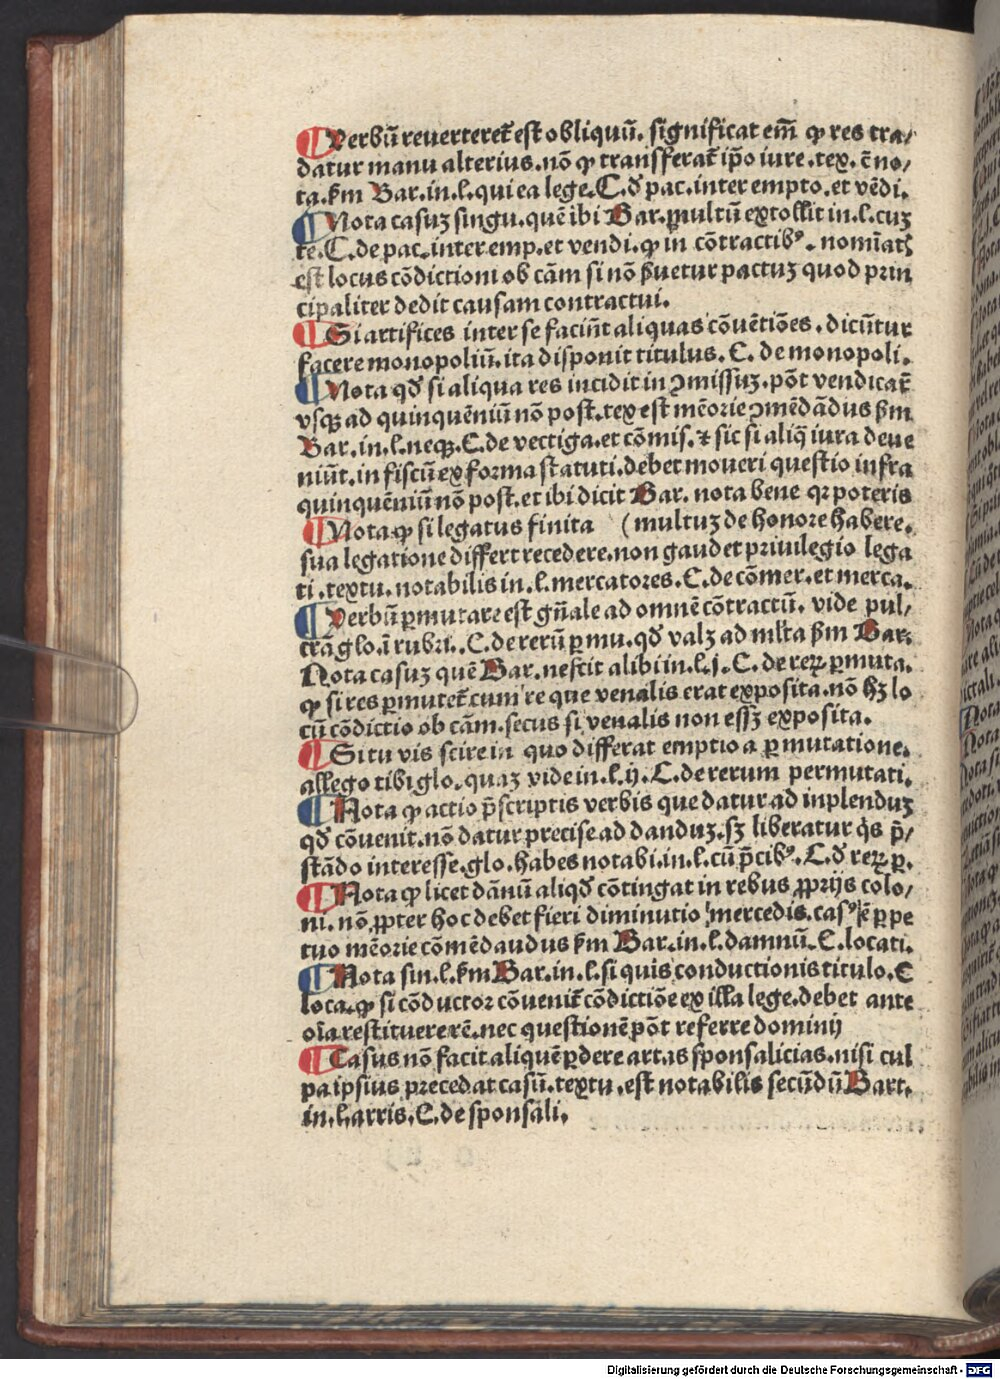 ¶ Verbū reuerteret̄ est obliquū. significat em̄ ꝙ res tra/
datur manu alterius. nō ꝙ transferat̄ ip̄o iure. tex. ē no/
ta. ẜm Bar. in. l. qui ea lege. C. đ pac. inter empto. et vēdi.
¶ Nota casuꝫ singu. quē ibi Bar. ꝑmultū extollit in. l. cuꝫ
te. C. de pac. inter emp. et vendi. ꝙ in cōtractibꝰ. nomīatꝭ
est locus cōdictioni ob cām si nō ẜuetur pactuꝫ quod prin
cipaliter dedit causam contractui.
¶ Si artifices inter se faciūt aliquas cōuētiōes. dicūtur
facere monopoliū. ita disponit titulus. C. de monopoli.
¶ Nota qđ si aliqua res incidit in ↄmissuꝫ. pōt vendicar̄
vsqꝫ ad quinquēniū nō post. tex est mēorie ↄmēdādus ẜm
Bar. in. l. neqꝫ. C. de vectiga. et cōmis. ⁊ sic si aliq̄ iura deue
niūt. in fiscū ex forma statuti. debet moueri questio infra
quinquēniū nō post. et ibi dicit Bar. nota bene qꝛ poteris
¶ Nota ꝙ si legatus finita (multuꝫ de honore habere.
sua legatione differt recedere. non gaudet priuilegio lega
ti. textu. notabilis in. l. mercatores. C. de cōmer. et merca.
¶ Verbū ꝑmutare est gn̄ale ad omnē cōtractū. vide pul/
crā glo. ī rubri. C. de rerū ꝑmu. qđ valꝫ ad ml̄ta ẜm Bar.
Nota casuꝫ quē Bar. nescit alibi in. l. j. C. de reꝝ ꝑmuta.
ꝙ si res ꝑmutet̄ cum re que venalis erat exposita. nō hꝫ lo
cū cōdictio ob cām. secus si venalis non essꝫ exposita.
¶ Si tu vis scire in quo differat emptio a ꝑmutatione.
allego tibi glo. quaꝫ vide in. l. ij. C. de rerum permutati.
¶ Nota ꝙ actio p̄scriptis verbis que datur ad inplenduꝫ
qđ cōuenit. nō datur precise ad danduꝫ. sꝫ liberatur q̇s p̄/
stādo interesse. glo. habes notabi. in. l. cū p̄cibꝰ. C. đ reꝝ ꝑ.
¶ Nota ꝙ licet dānū aliqđ cōtingat in rebus ꝓprijs colo/
ni. nō ꝓpter hoc debet fieri diminutio mercedis. casꝰ ē ꝑpe
tuo mēorie cōmēdaudus ẜm Bar. in. l. damnū. C. locati.
¶ Nota sin. l. ẜm Bar. in. l. si quis conductionis titulo. C
loca. ꝙ si cōductor cōuenit̄ cōdictiōe ex illa lege. debet ante
oīa restituere rē. nec questionē pōt referre dominij
¶ Casus nō facit aliquē ꝑdere arras sponsalicias. nisi cul
pa ipsius precedat casū. textu. est notabilis secūdū Bart.
in. l. arris. C. de sponsali.
Digitalisierung gefördert durch die Deutsche Forschungsgemeinschaft - DFG